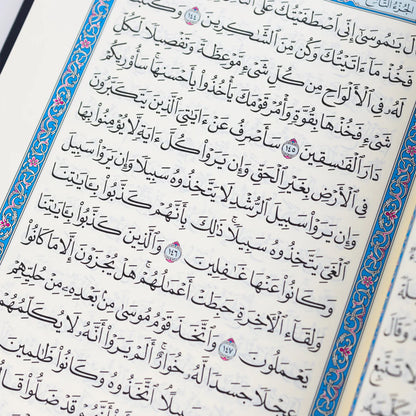 الجزء التاسع
يَٰمُوسَىٰٓ إِنِّى ٱصْطَفَيْتُكَ عَلَى
فَخُذْ مَآ ءَاتَيْتُكَ وَكُن مِّنَ ٱلشَّٰكِرِينَ ١٤٤
لَهُۥ فِى ٱلْأَلْوَاحِ مِن كُلِّ شَىْءٍ مَّوْعِظَةً وَتَفْصِيلًا لِّكُلِّ
شَىْءٍ فَخُذْهَا بِقُوَّةٍ وَأْمُرْ قَوْمَكَ يَأْخُذُوا۟ بِأَحْسَنِهَا سَأُو۟رِيكُمْ
دَارَ ٱلْفَٰسِقِينَ ١٤٥ سَأَصْرِفُ عَنْ ءَايَٰتِىَ ٱلَّذِينَ يَتَكَبَّرُونَ
فِى ٱلْأَرْضِ بِغَيْرِ ٱلْحَقِّ وَإِن يَرَوْا۟ كُلَّ ءَايَةٍ لَّا يُؤْمِنُوا۟ بِهَا
وَإِن يَرَوْا۟ سَبِيلَ ٱلرُّشْدِ لَا يَتَّخِذُوهُ سَبِيلًا وَإِن يَرَوْا۟ سَبِيلَ
ٱلْغَىِّ يَتَّخِذُوهُ سَبِيلًا ذَٰلِكَ بِأَنَّهُمْ كَذَّبُوا۟ بِـَٔايَٰتِنَا
وَكَانُوا۟ عَنْهَا غَٰفِلِينَ ١٤٦ وَٱلَّذِينَ كَذَّبُوا۟ بِـَٔايَٰتِنَا
وَلِقَآءِ ٱلْءَاخِرَةِ حَبِطَتْ أَعْمَٰلُهُمْ هَلْ يُجْزَوْنَ إِلَّا مَا كَانُوا۟
يَعْمَلُونَ ١٤٧ وَٱتَّخَذَ قَوْمُ مُوسَىٰ مِنۢ بَعْدِهِۦ مِنْ حُلِيِّهِمْ
عِجْلًا جَسَدًا لَّهُۥ خُوَارٌ أَلَمْ يَرَوْا۟ أَنَّهُۥ لَا يُكَلِّمُهُمْ
سَبِيلًا ٱتَّخَذُوهُ وَكَانُوا۟ ظَٰلِمِينَ
أَنَّهُمْ قَدْ ضَلُّوا۟